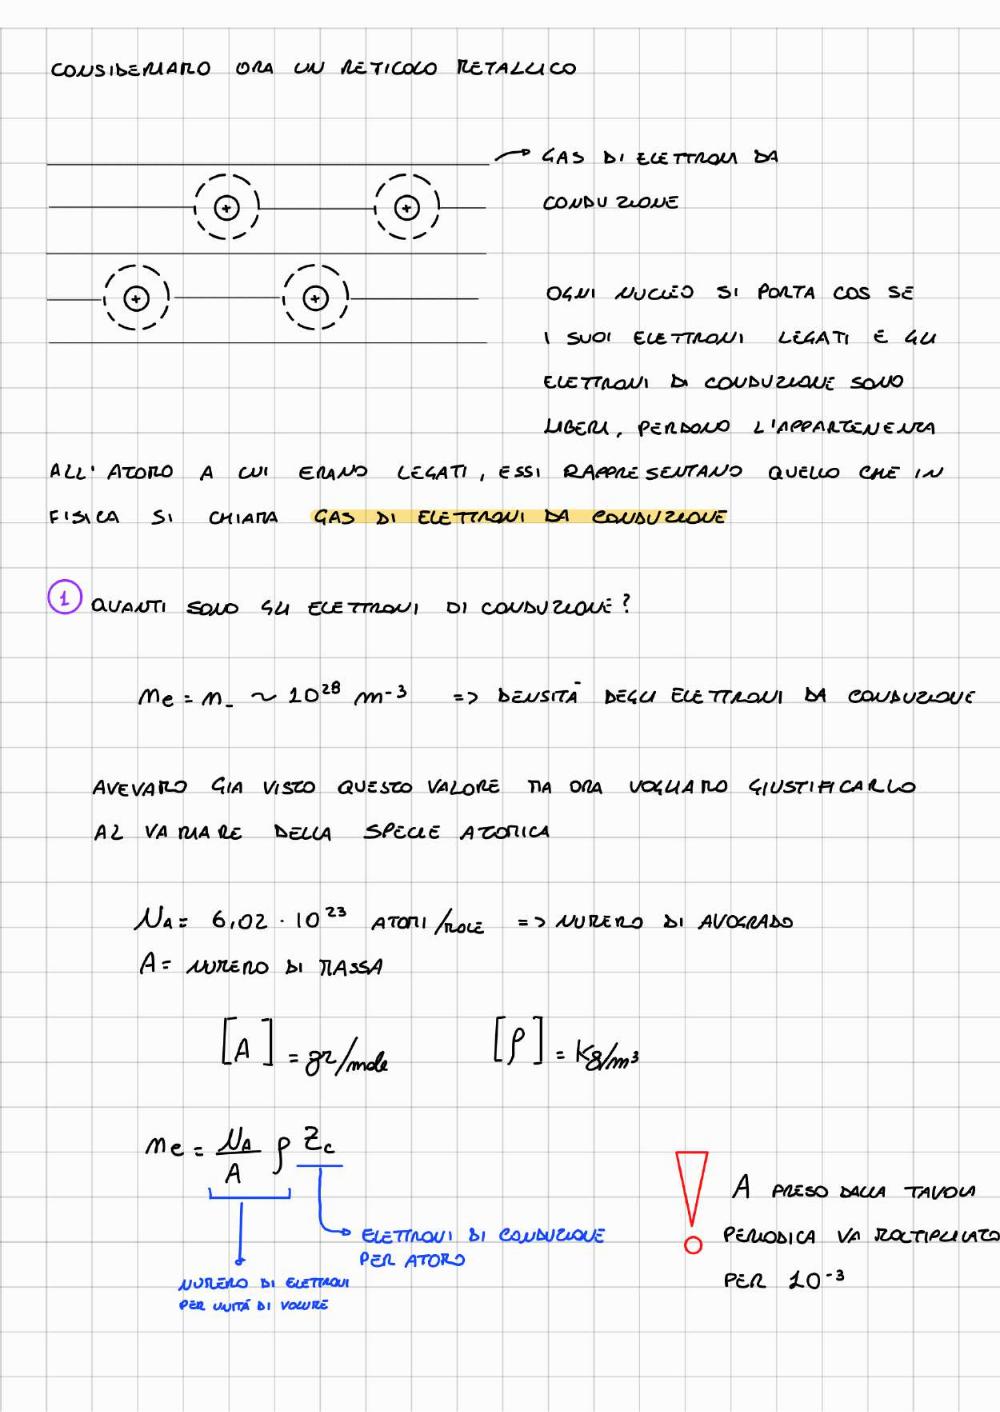 CONSIDERIAMO ORA UN RETICOLO METALLICO
+ +
+ +
GAS DI ELETTRONI DA
CONDUZIONE
OGNI NUCLEO SI PORTA COS SE
I SUOI ELETTRONI LEGATI E GLI
ELETTRONI DI CONDUZIONE SONO
LIBERI, PERDONO L'APPARTENENZA
ALL'ATOMO A CUI ERANO LEGATI, ESSI RAPPRESENTANO QUELLO CHE IN
FISICA SI CHIAMA GAS DI ELETTRONI DA CONDUZIONE
1 QUANTI SONO GLI ELETTRONI DI CONDUZIONE?
ne = n_ ~ 10²⁸ m⁻³ => DENSITÀ DEGLI ELETTRONI DA CONDUZIONE
AVEVAMO GIA VISTO QUESTO VALORE MA ORA VOGLIAMO GIUSTIFICARLO
AL VARIARE DELLA SPECIE ATOMICA
NA = 6,02 · 10²³ ATOMI/MOLE => NUMERO DI AVOGRADO
A = NUMERO DI MASSA
[A] = gr/mole [ρ] = Kg/m³
ne = NA/A ρ Zc
ELETTRONI DI CONDUZIONE
PER ATOMO
NUMERO DI ELETTRONI
PER UNITÁ DI VOLUME
! A PRESO DALLA TAVOLA
PERIODICA VA MOLTIPLICATO
PER 10⁻³